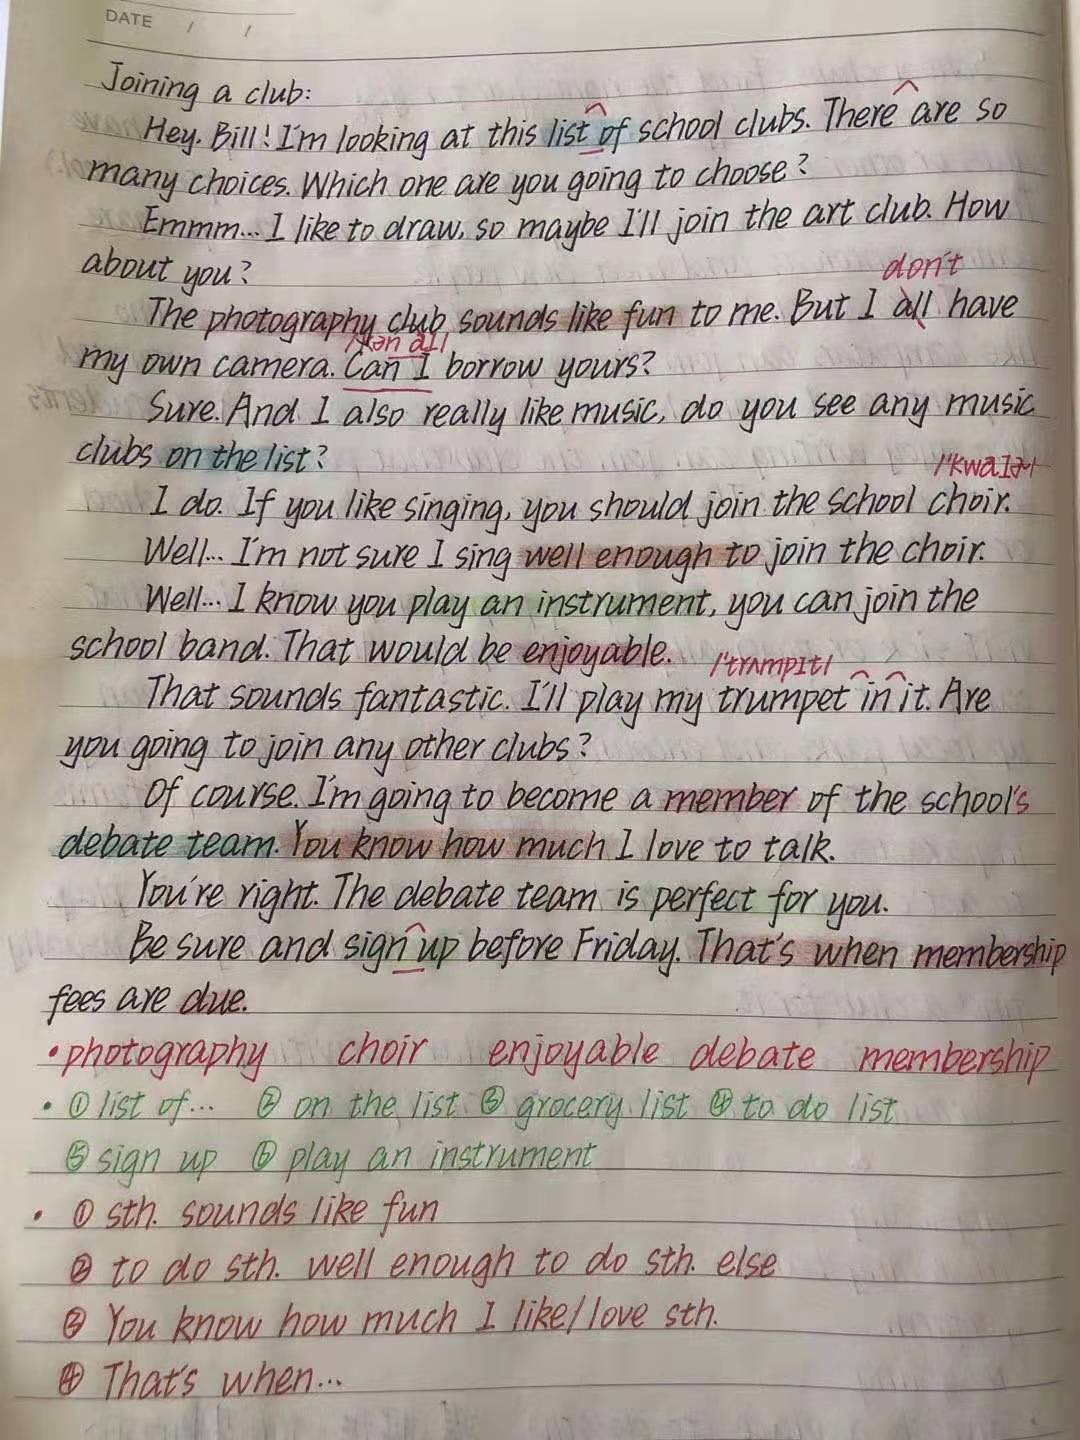 DATE / /
Joining a club:
Hey. Bill! I'm looking at this list of school clubs. There are so
many choices. Which one are you going to choose?
Emmm... I like to draw, so maybe I'll join the art club. How
about you?
don't
The photography club sounds like fun to me. But I all have
my own camera. Can I borrow yours?
Sure. And I also really like music, do you see any music
clubs on the list?
/ˈkwaɪɚ/
I do. If you like singing, you should join the school choir.
Well... I'm not sure I sing well enough to join the choir.
Well... I know you play an instrument, you can join the
school band. That would be enjoyable.
/ˈtrʌmpɪt/
That sounds fantastic. I'll play my trumpet in it. Are
you going to join any other clubs?
Of course. I'm going to become a member of the school's
debate team. You know how much I love to talk.
You're right. The debate team is perfect for you.
Be sure and sign up before Friday. That's when membership
fees are due.
• photography choir enjoyable debate membership
• ① list of... ② on the list ③ grocery list ④ to do list
⑤ sign up ⑥ play an instrument
• ① sth. sounds like fun
② to do sth. well enough to do sth. else
③ You know how much I like/love sth.
④ That's when...